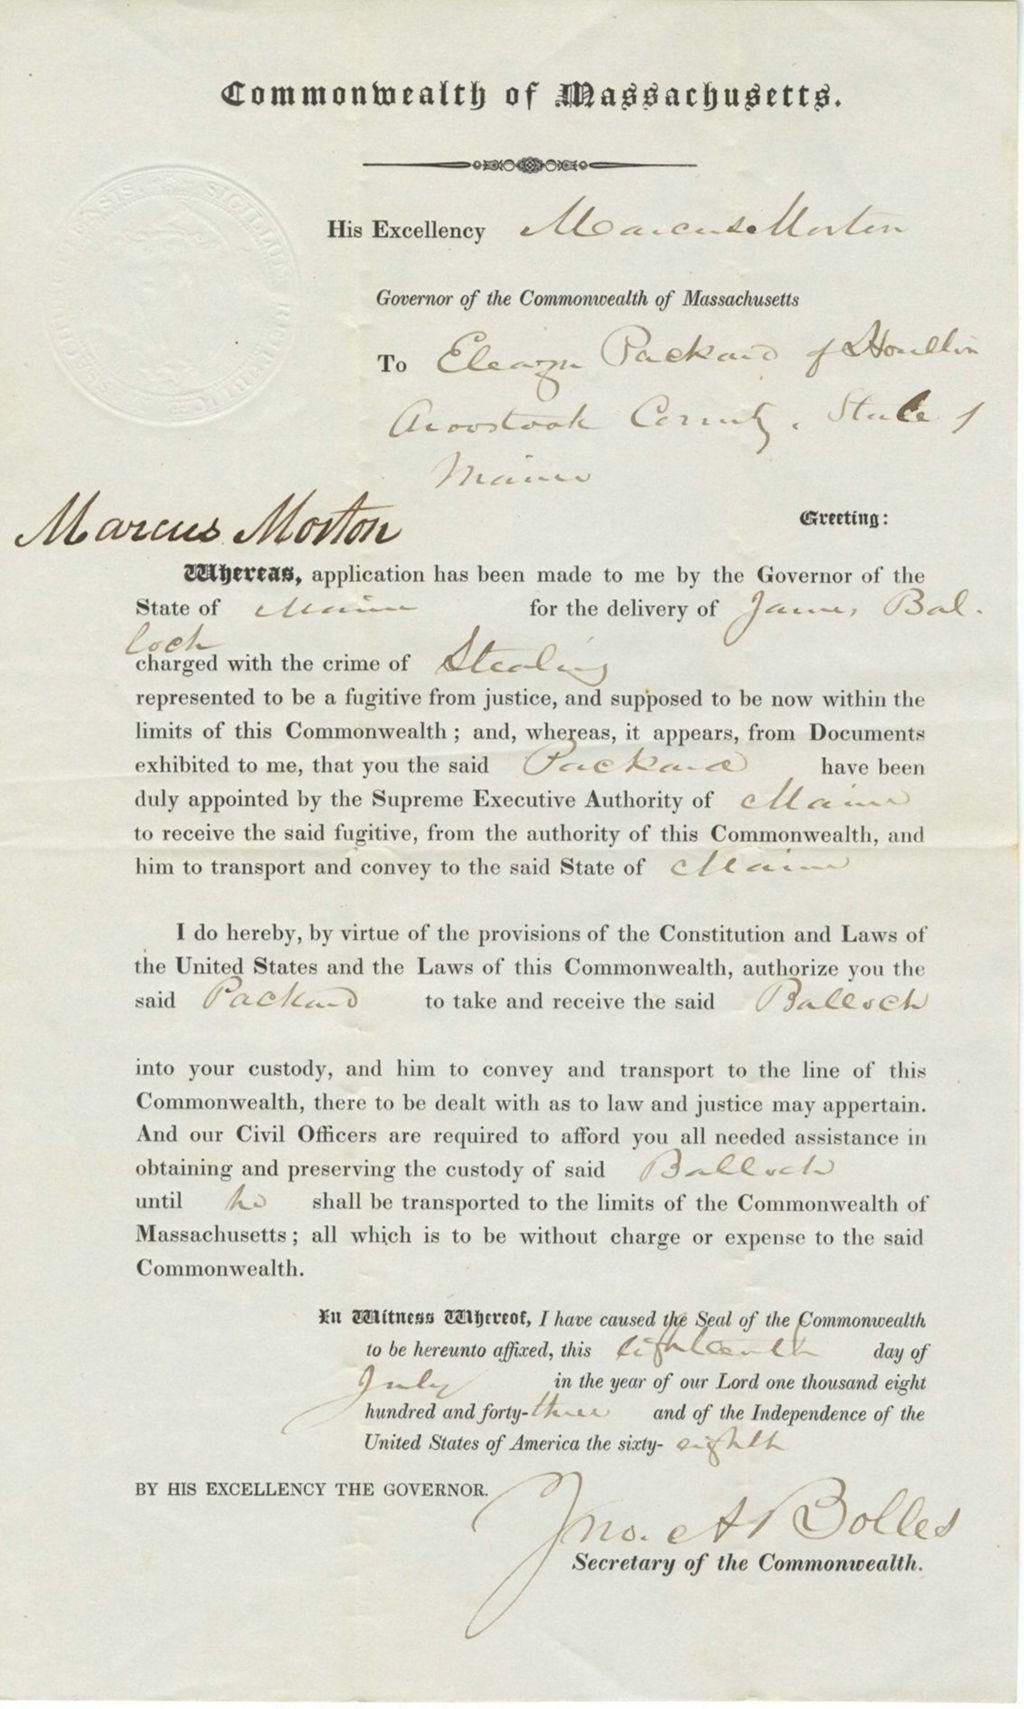 Commonwealth of Massachusetts.
SIGILLUM REIPUBLICÆ
His Excellency Marcus Morton
Governor of the Commonwealth of Massachusetts
To Eleazer Packard of Houlton
Aroostook County, State of
Maine
Marcus Morton
Greeting:
Whereas, application has been made to me by the Governor of the
State of Maine for the delivery of James Bal-
loch
charged with the crime of Stealing
represented to be a fugitive from justice, and supposed to be now within the
limits of this Commonwealth; and, whereas, it appears, from Documents
exhibited to me, that you the said Packard have been
duly appointed by the Supreme Executive Authority of Maine
to receive the said fugitive, from the authority of this Commonwealth, and
him to transport and convey to the said State of Maine
I do hereby, by virtue of the provisions of the Constitution and Laws of
the United States and the Laws of this Commonwealth, authorize you the
said Packard to take and receive the said Balloch
into your custody, and him to convey and transport to the line of this
Commonwealth, there to be dealt with as to law and justice may appertain.
And our Civil Officers are required to afford you all needed assistance in
obtaining and preserving the custody of said Balloch
until he shall be transported to the limits of the Commonwealth of
Massachusetts; all which is to be without charge or expense to the said
Commonwealth.
In Witness Whereof, I have caused the Seal of the Commonwealth
to be hereunto affixed, this eighteenth day of
July in the year of our Lord one thousand eight
hundred and forty-three and of the Independence of the
United States of America the sixty-eighth
BY HIS EXCELLENCY THE GOVERNOR.
Jno. A Bolles
Secretary of the Commonwealth.